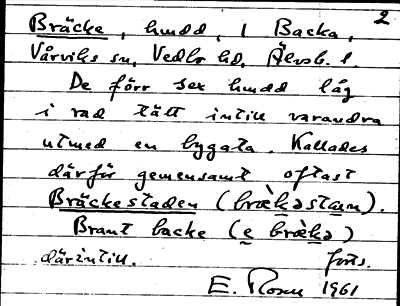 2
Bräcke, hmdd, i Backa,
Vårviks sn, Vedbo hd, Älvsb. l.
De förr sex hmdd låg
i rad tätt intill varandra
utmed en bygata. Kallades
därför gemensamt oftast
Bräckestaden (bræ̀kəstan).
Brant backe (e bræ̀kə)
därintill. forts.
E. Rosén 1961